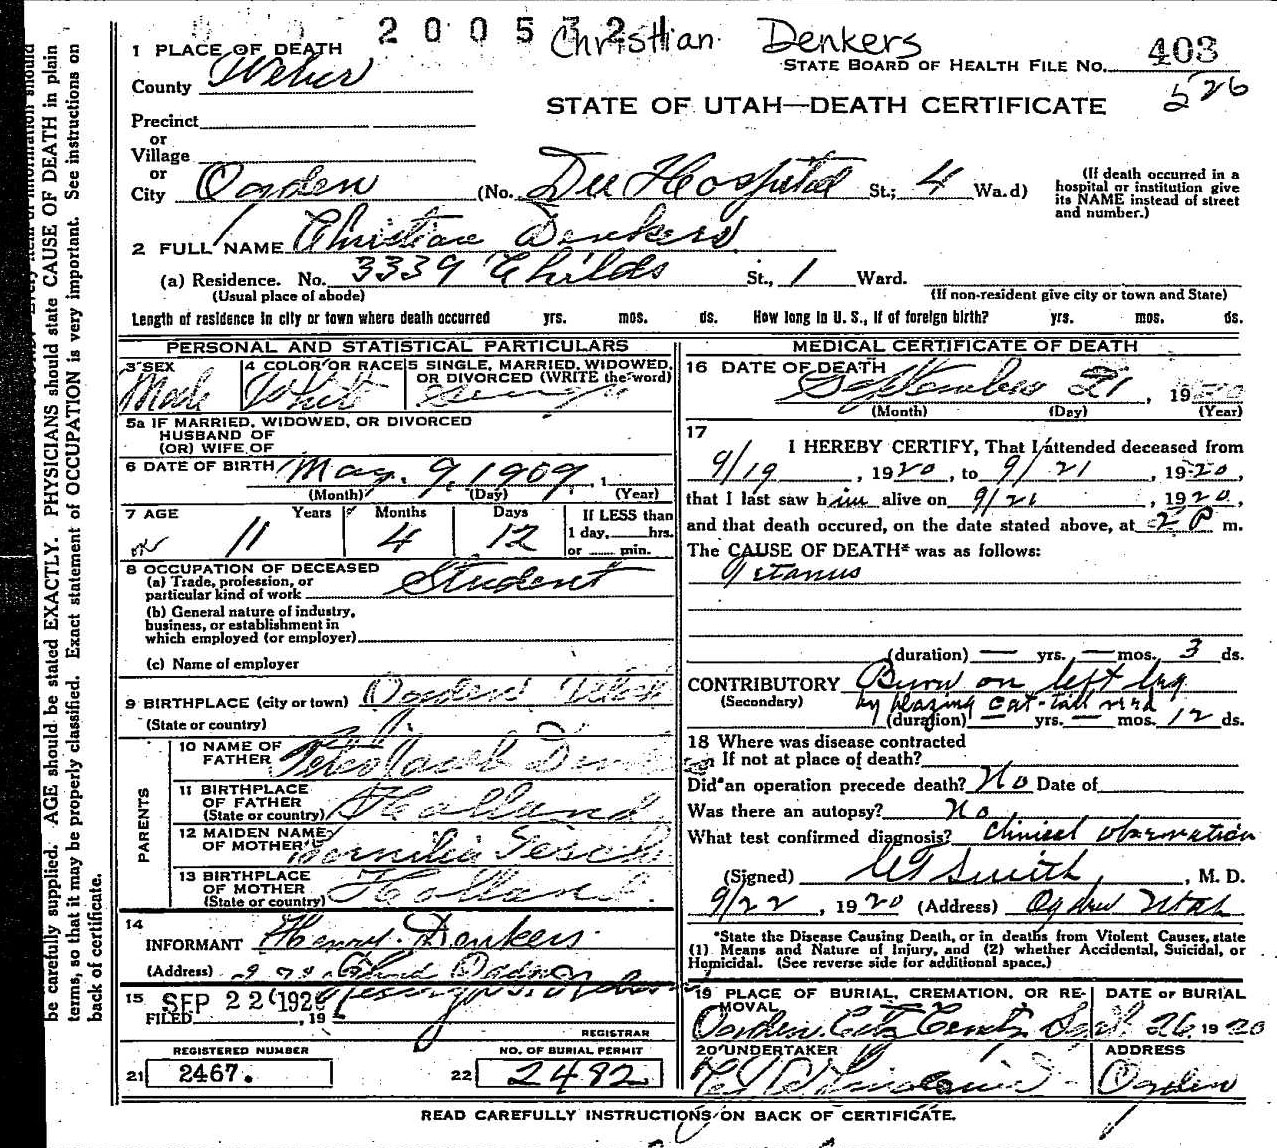 2005721 Christian Denkers
1 PLACE OF DEATH
STATE BOARD OF HEALTH FILE No. 403
County Weber
526
STATE OF UTAH—DEATH CERTIFICATE
Precinct
or
Village
or
City Ogden (No. Dee Hospital St.; 4 Wa.d)
(If death occurred in a hospital or institution give its NAME instead of street and number.)
2 FULL NAME Christian Denkers
(a) Residence. No. 3339 Childs St., 1 Ward.
(Usual place of abode) (If non-resident give city or town and State)
Length of residence in city or town where death occurred yrs. mos. ds. How long in U. S., if of foreign birth? yrs. mos. ds.
PERSONAL AND STATISTICAL PARTICULARS
3 SEX Male
4 COLOR OR RACE White
5 SINGLE, MARRIED, WIDOWED, OR DIVORCED (WRITE the word) Single
5a IF MARRIED, WIDOWED, OR DIVORCED
HUSBAND OF
(OR) WIFE OF
6 DATE OF BIRTH May. 9, 1909.
(Month) (Day) (Year)
7 AGE Years Months Days If LESS than
11 4 12 1 day, hrs.
or min.
8 OCCUPATION OF DECEASED
(a) Trade, profession, or
particular kind of work Student
(b) General nature of industry,
business, or establishment in
which employed (or employer)
(c) Name of employer
9 BIRTHPLACE (city or town) Ogden Utah
(State or country)
PARENTS
10 NAME OF
FATHER Jacob
11 BIRTHPLACE
OF FATHER
(State or country) Holland
12 MAIDEN NAME
OF MOTHER
13 BIRTHPLACE
OF MOTHER
(State or country) Holland
14
INFORMANT Henry Denkers
(Address) Ogden
15 SEP 22 192
FILED , 19
REGISTRAR
REGISTERED NUMBER NO. OF BURIAL PERMIT
21 2467. 22 2482
MEDICAL CERTIFICATE OF DEATH
16 DATE OF DEATH
September 21, 1920
(Month) (Day) (Year)
17
I HEREBY CERTIFY, That I attended deceased from
9/19, 1920, to 9/21, 1920,
that I last saw him alive on 9/21, 1920,
and that death occured, on the date stated above, at 2 P m.
The CAUSE OF DEATH* was as follows:
Tetanus
(duration) — yrs. — mos. 3 ds.
CONTRIBUTORY Burn on left leg
(Secondary) by blazing cat-tail reed
(duration) — yrs. — mos. 12 ds.
18 Where was disease contracted
If not at place of death?
Did an operation precede death? No Date of
Was there an autopsy? No
What test confirmed diagnosis? Clinical observation
(Signed) Smith, M. D.
9/22, 1920 (Address) Ogden Utah
*State the Disease Causing Death, or in deaths from Violent Causes, state
(1) Means and Nature of Injury, and (2) whether Accidental, Suicidal, or
Homicidal. (See reverse side for additional space.)
19 PLACE OF BURIAL, CREMATION, OR RE-
MOVAL DATE OF BURIAL
Ogden City Cemety Sept. 26, 1920
20 UNDERTAKER ADDRESS
Ogden
READ CAREFULLY INSTRUCTIONS ON BACK OF CERTIFICATE.
be carefully supplied. AGE should be stated EXACTLY. PHYSICIANS should state CAUSE OF DEATH in plain
terms, so that it may be properly classified. Exact statement of OCCUPATION is very important. See instructions on
back of certificate.